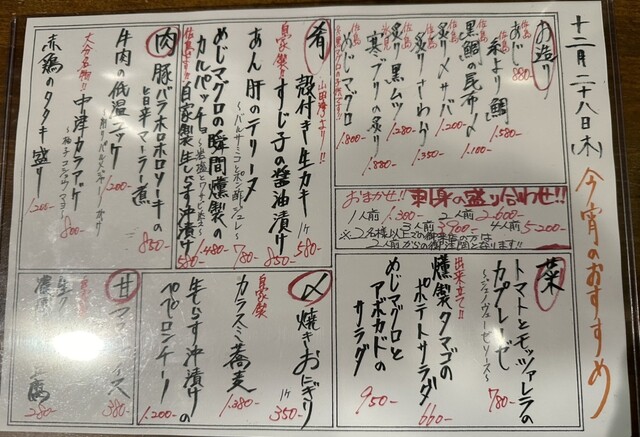 十二月二十八日(木)
今宵のおすすめ
お造り
佐島 あじ 880-
佐島 糸より鯛 1.580-
黒鯛の昆布〆 1.100-
佐島 炙り〆サバ
佐島 炙りさわら 1.350-
炙り黒ムツ 1.280-
寒ブリの炙り 1.880-
めじマグロ 1.800-
おまかせ!!刺身の盛り合わせ!!
1人前 1.300- 2人前 2.600-
3人前 3.900- 4人前 5.200-
※2名様以上での御来店の方は
2人前からの御注文となります!!
菜
トマトとモッツァレラの
カプレーゼ
〜ジェノヴェーゼソース〜 780-
出来立て!!
燻製タマゴの
ポテトサラダ 660-
めじマグロと
アボカドの
サラダ 950-
肴
殻付き生カキ 1ケ 580-
自家製!!すじ子の醤油漬け 850-
あん肝のテリーヌ
〜バルサミコとポン酢ジュレ〜 780-
めじマグロの瞬間燻製の
カルパッチョ 1.480-
〜岩塩とワサビ添え〜
佐島です!!自家製生しらす沖漬け 580-
肉
豚バラホロホロソーキの
旨味マーラー煮 850-
牛肉の低温ユッケ 1.200-
大分名物!!中津カラアゲ 800-
〜柚子コショウマヨ〜
赤鶏のタタキ盛り 1.200-
〆
焼きおにぎり 1ケ 350-
自家製
カラスミ蕎麦 1.280-
生しらす沖漬けの
ペペロンチーノ 1.200-
甘
380-
280-